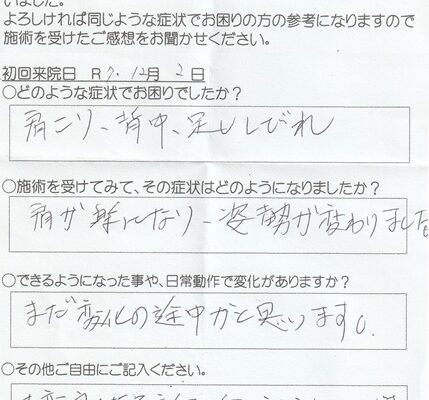 いました。
よろしければ同じような症状でお困りの方の参考になりますので
施術を受けたご感想をお聞かせください。
初回来院日 R7.12月2日
○どのような症状でお困りでしたか?
肩こり、背中、足のしびれ
○施術を受けてみて、その症状はどのようになりましたか?
肩が楽になり、姿勢が変わりました
○できるようになった事や、日常動作で変化がありますか?
まだ変化の途中かと思います。
○その他ご自由にご記入ください。